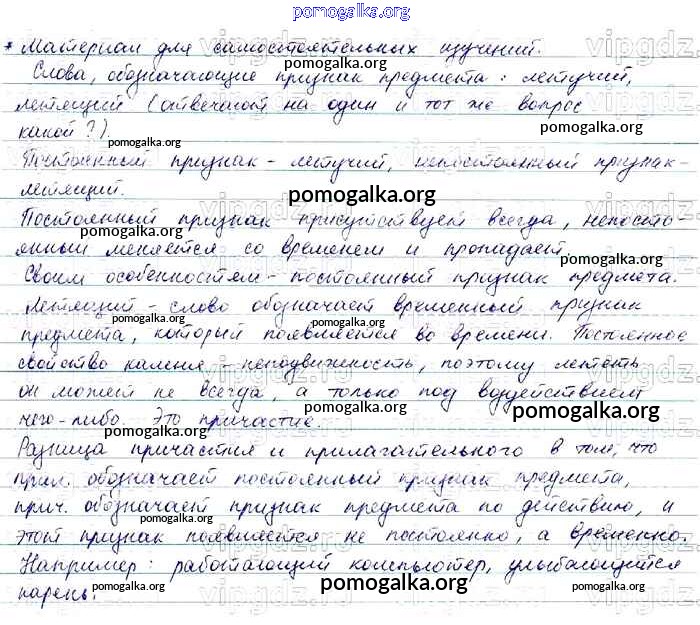 pomogalka.org
* Материал для самостоятельных изучений.
Слова, обозначающие признак предмета: летучий,
летящий (отвечают на один и тот же вопрос
какой?).
pomogalka.org
pomogalka.org
Постоянный признак - летучий, непостоянный признак -
летящий.
pomogalka.org
Постоянный признак присутствует всегда, непосто-
янный меняется со временем и пропадает.
pomogalka.org
pomogalka.org
Своим особенностям - постоянный признак предмета.
Летящий - слово обозначает временный признак
pomogalka.org
pomogalka.org
предмета, который появляется во времени. Постоянное
свойство камня - неподвижность, поэтому лететь
он может не всегда, а только под воздействием
pomogalka.org
pomogalka.org
чего-либо. Это причастие.
pomogalka.org
Разница причастия и прилагательного в том, что
прил. обозначает постоянный признак предмета,
прич. обозначает признак предмета по действию, и
pomogalka.org
pomogalka.org
этот признак появляется не постоянно, а временно.
Например: работающий компьютер, улыбающийся
парень.
pomogalka.org
pomogalka.org
pomogalka.org